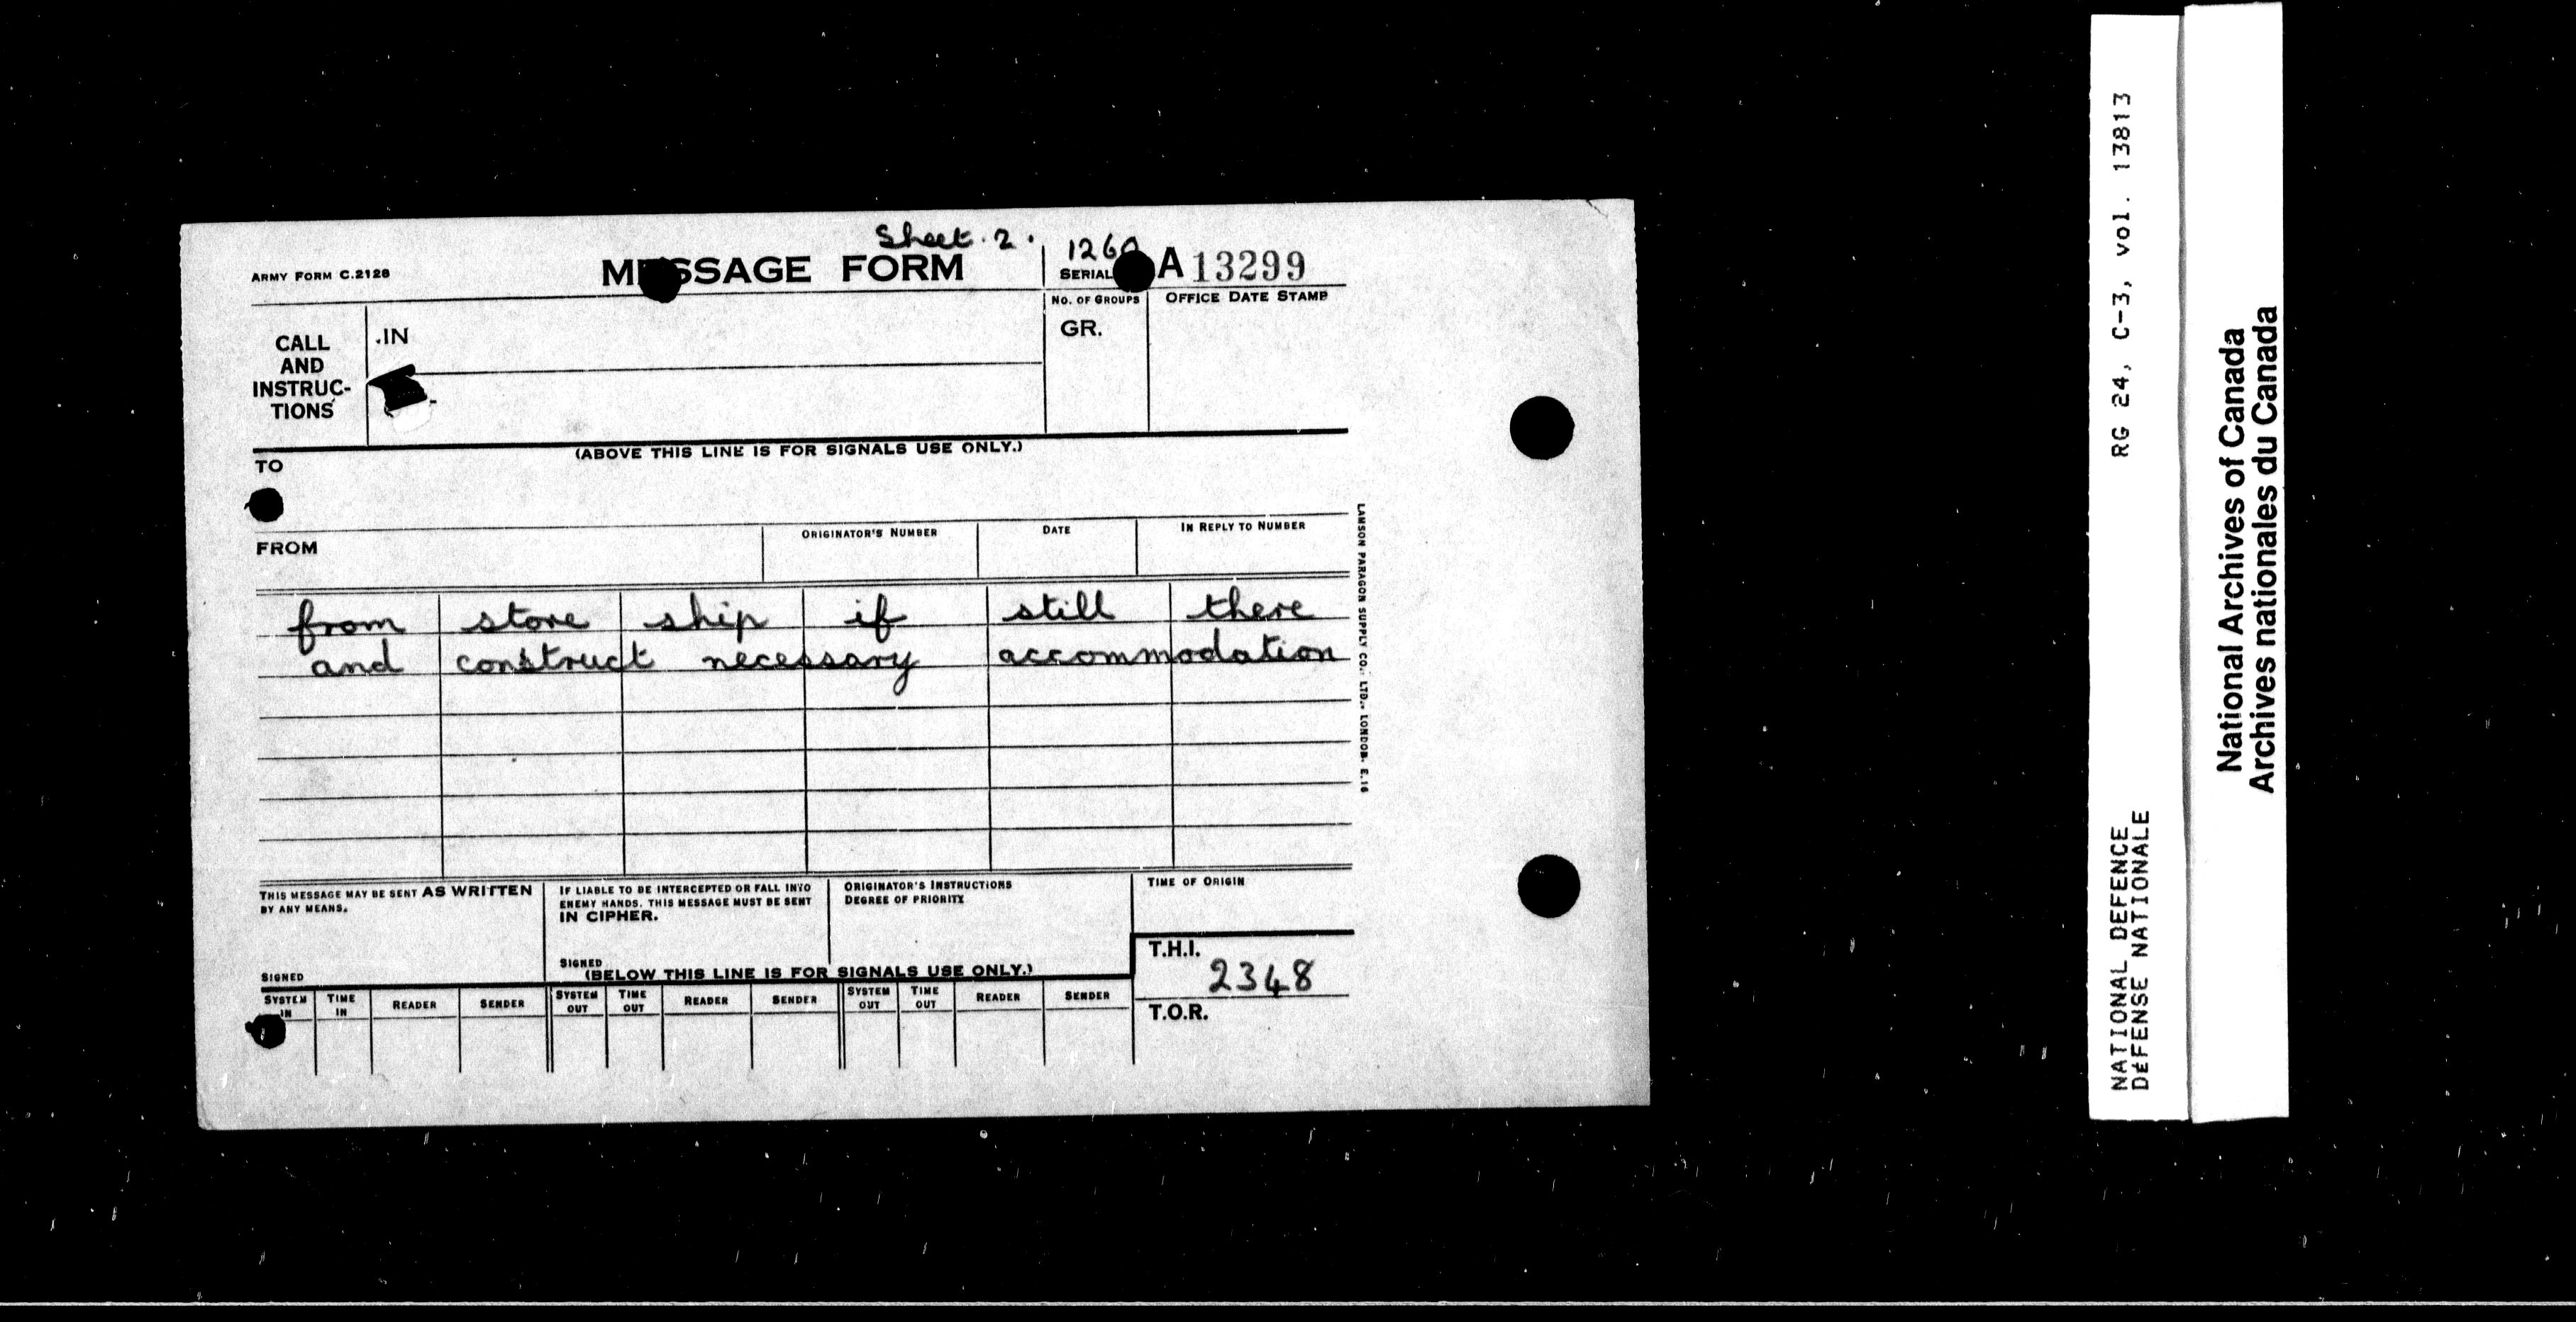 Sheet. 2.
ARMY FORM C.2128
MESSAGE FORM
SERIAL
A 13299
NO. OF GROUPS
OFFICE DATE STAMP
CALL
AND
INSTRUC-
TIONS
.IN
GR.
(ABOVE THIS LINE IS FOR SIGNALS USE ONLY.)
TO
FROM
ORIGINATOR'S NUMBER
DATE
IN REPLY TO NUMBER
from store ship if still there
and construct necessary accommodation
LAMSON PARAGON SUPPLY CO., LTD., LONDON. E.16
THIS MESSAGE MAY BE SENT AS WRITTEN
BY ANY MEANS.
SIGNED
IF LIABLE TO BE INTERCEPTED OR FALL INTO
ENEMY HANDS, THIS MESSAGE MUST BE SENT
IN CIPHER.
SIGNED
ORIGINATOR'S INSTRUCTIONS
DEGREE OF PRIORITY
TIME OF ORIGIN
(BELOW THIS LINE IS FOR SIGNALS USE ONLY.)
T.H.I.
2348
T.O.R.
SYSTEM IN
TIME IN
READER
SENDER
SYSTEM OUT
TIME OUT
READER
SENDER
SYSTEM OUT
TIME OUT
READER
SENDER
RG 24, C-3, vol. 13813
NATIONAL DEFENCE
DÉFENSE NATIONALE
National Archives of Canada
Archives nationales du Canada